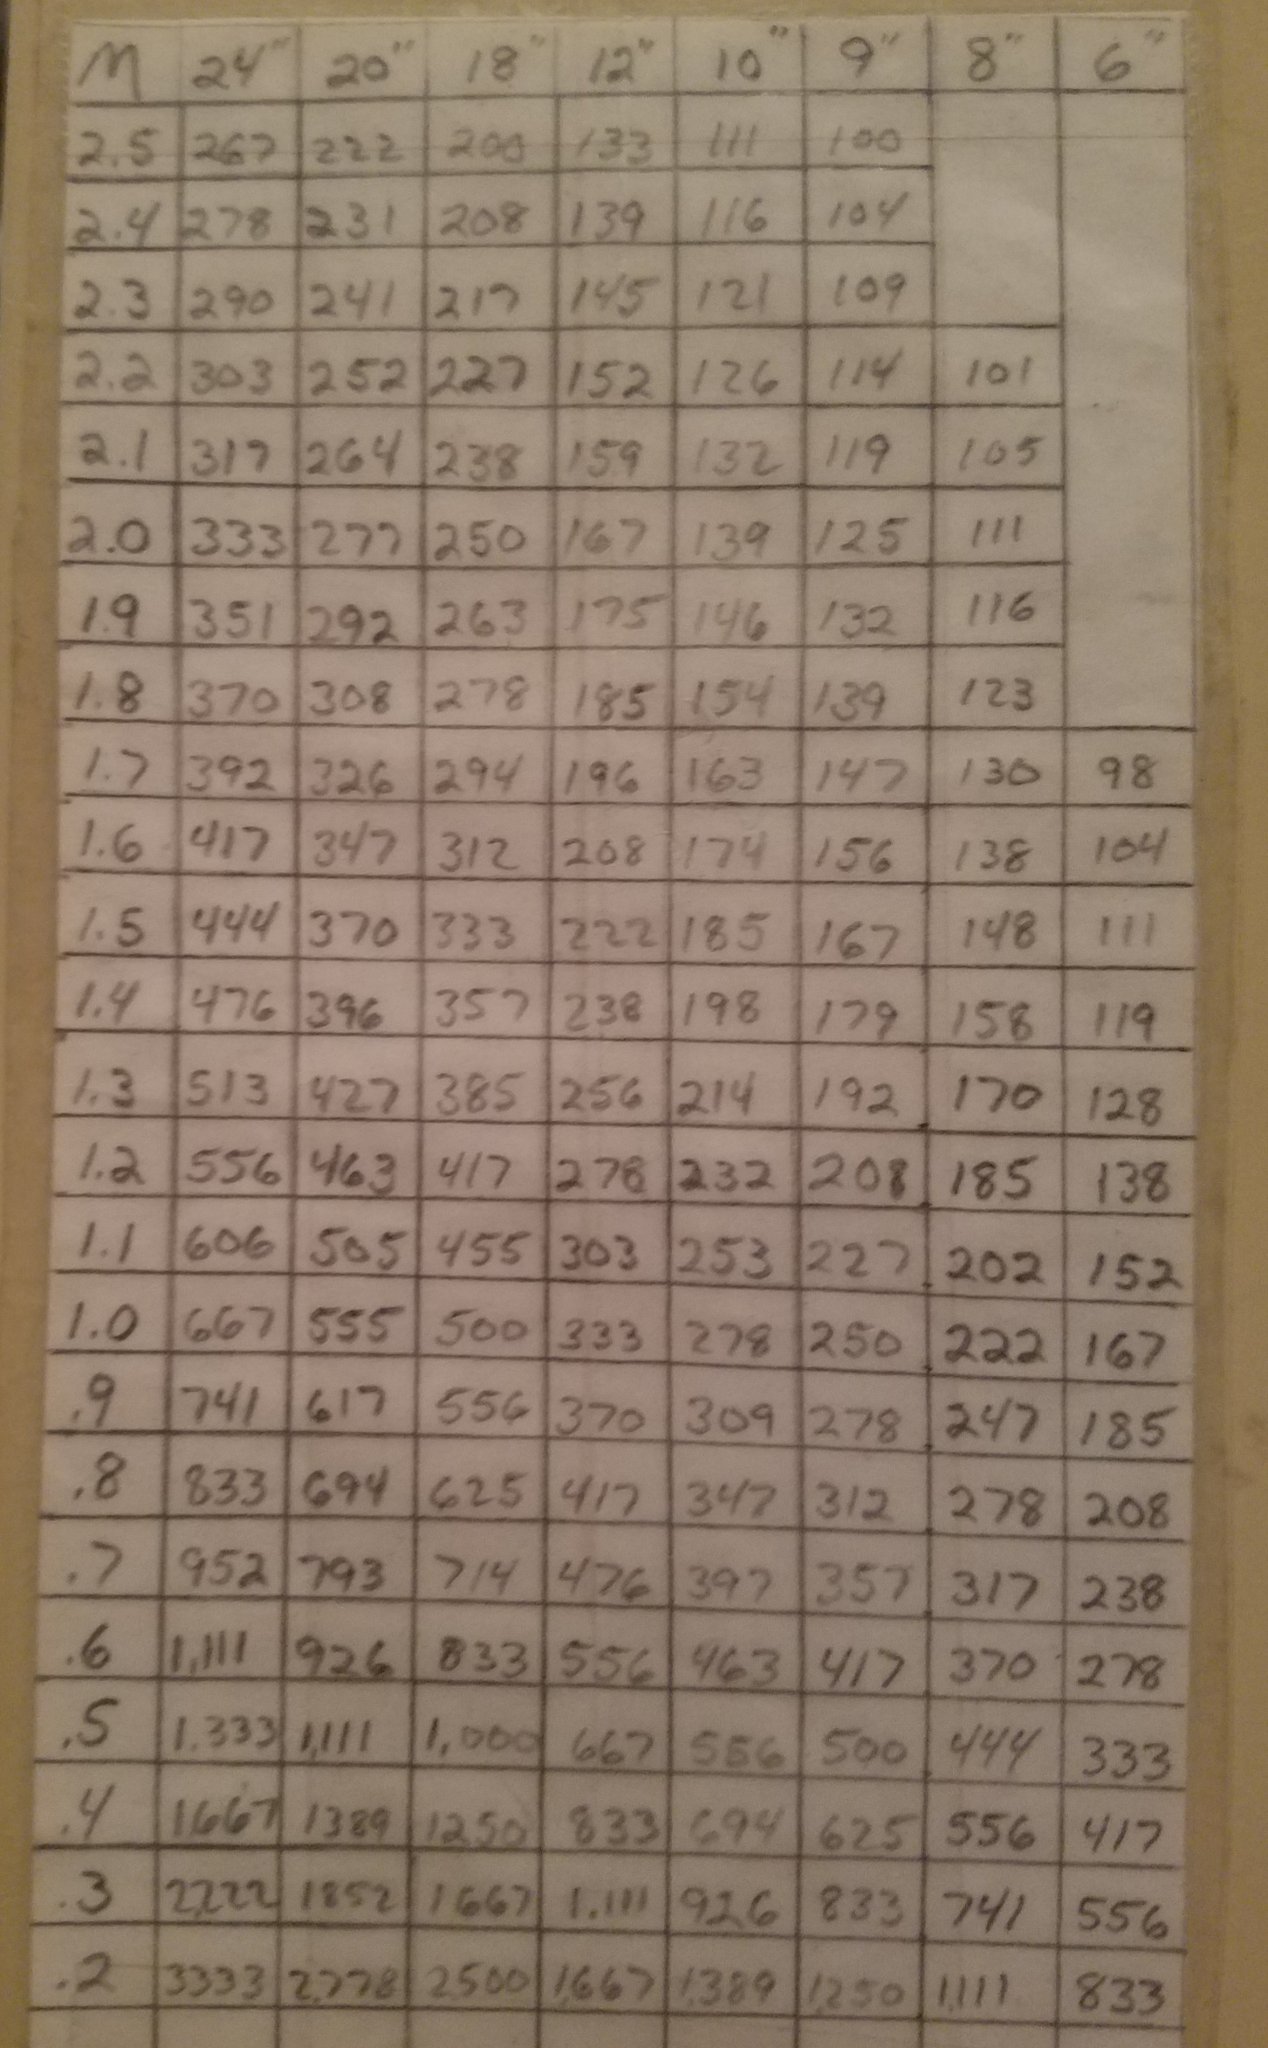 M 24" 20" 18" 12" 10" 9" 8" 6"
2.5 267 222 200 133 111 100
2.4 278 231 208 139 116 104
2.3 290 241 217 145 121 109
2.2 303 252 227 152 126 114 101
2.1 317 264 238 159 132 119 105
2.0 333 277 250 167 139 125 111
1.9 351 292 263 175 146 132 116
1.8 370 308 278 185 154 139 123
1.7 392 326 294 196 163 147 130 98
1.6 417 347 312 208 174 156 138 104
1.5 444 370 333 222 185 167 148 111
1.4 476 396 357 238 198 179 158 119
1.3 513 427 385 256 214 192 170 128
1.2 556 463 417 278 232 208 185 138
1.1 606 505 455 303 253 227 202 152
1.0 667 555 500 333 278 250 222 167
.9 741 617 556 370 309 278 247 185
.8 833 694 625 417 347 312 278 208
.7 952 793 714 476 397 357 317 238
.6 1,111 926 833 556 463 417 370 278
.5 1.333 1,111 1,000 667 556 500 444 333
.4 1667 1389 1250 833 694 625 556 417
.3 2,222 1852 1667 1.111 926 833 741 556
.2 3333 2,778 2500 1,667 1,389 1,250 1,111 833